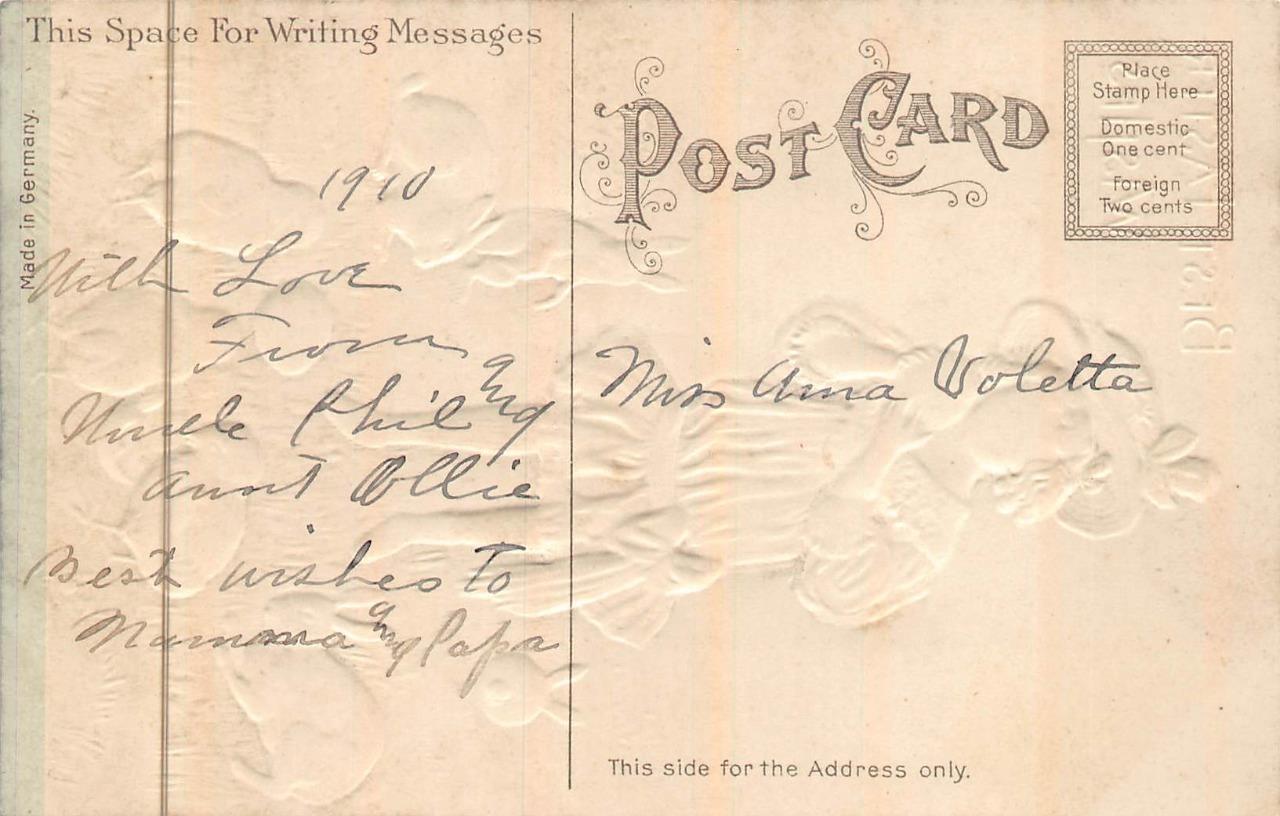 This Space For Writing Messages
Made in Germany.
1910
With Love
From
Uncle Phil and
Aunt Ollie
Best wishes to
Mamma and Papa
POST CARD
Place
Stamp Here
Domestic
One cent
Foreign
Two cents
Miss Anna Voletta
This side for the Address only.